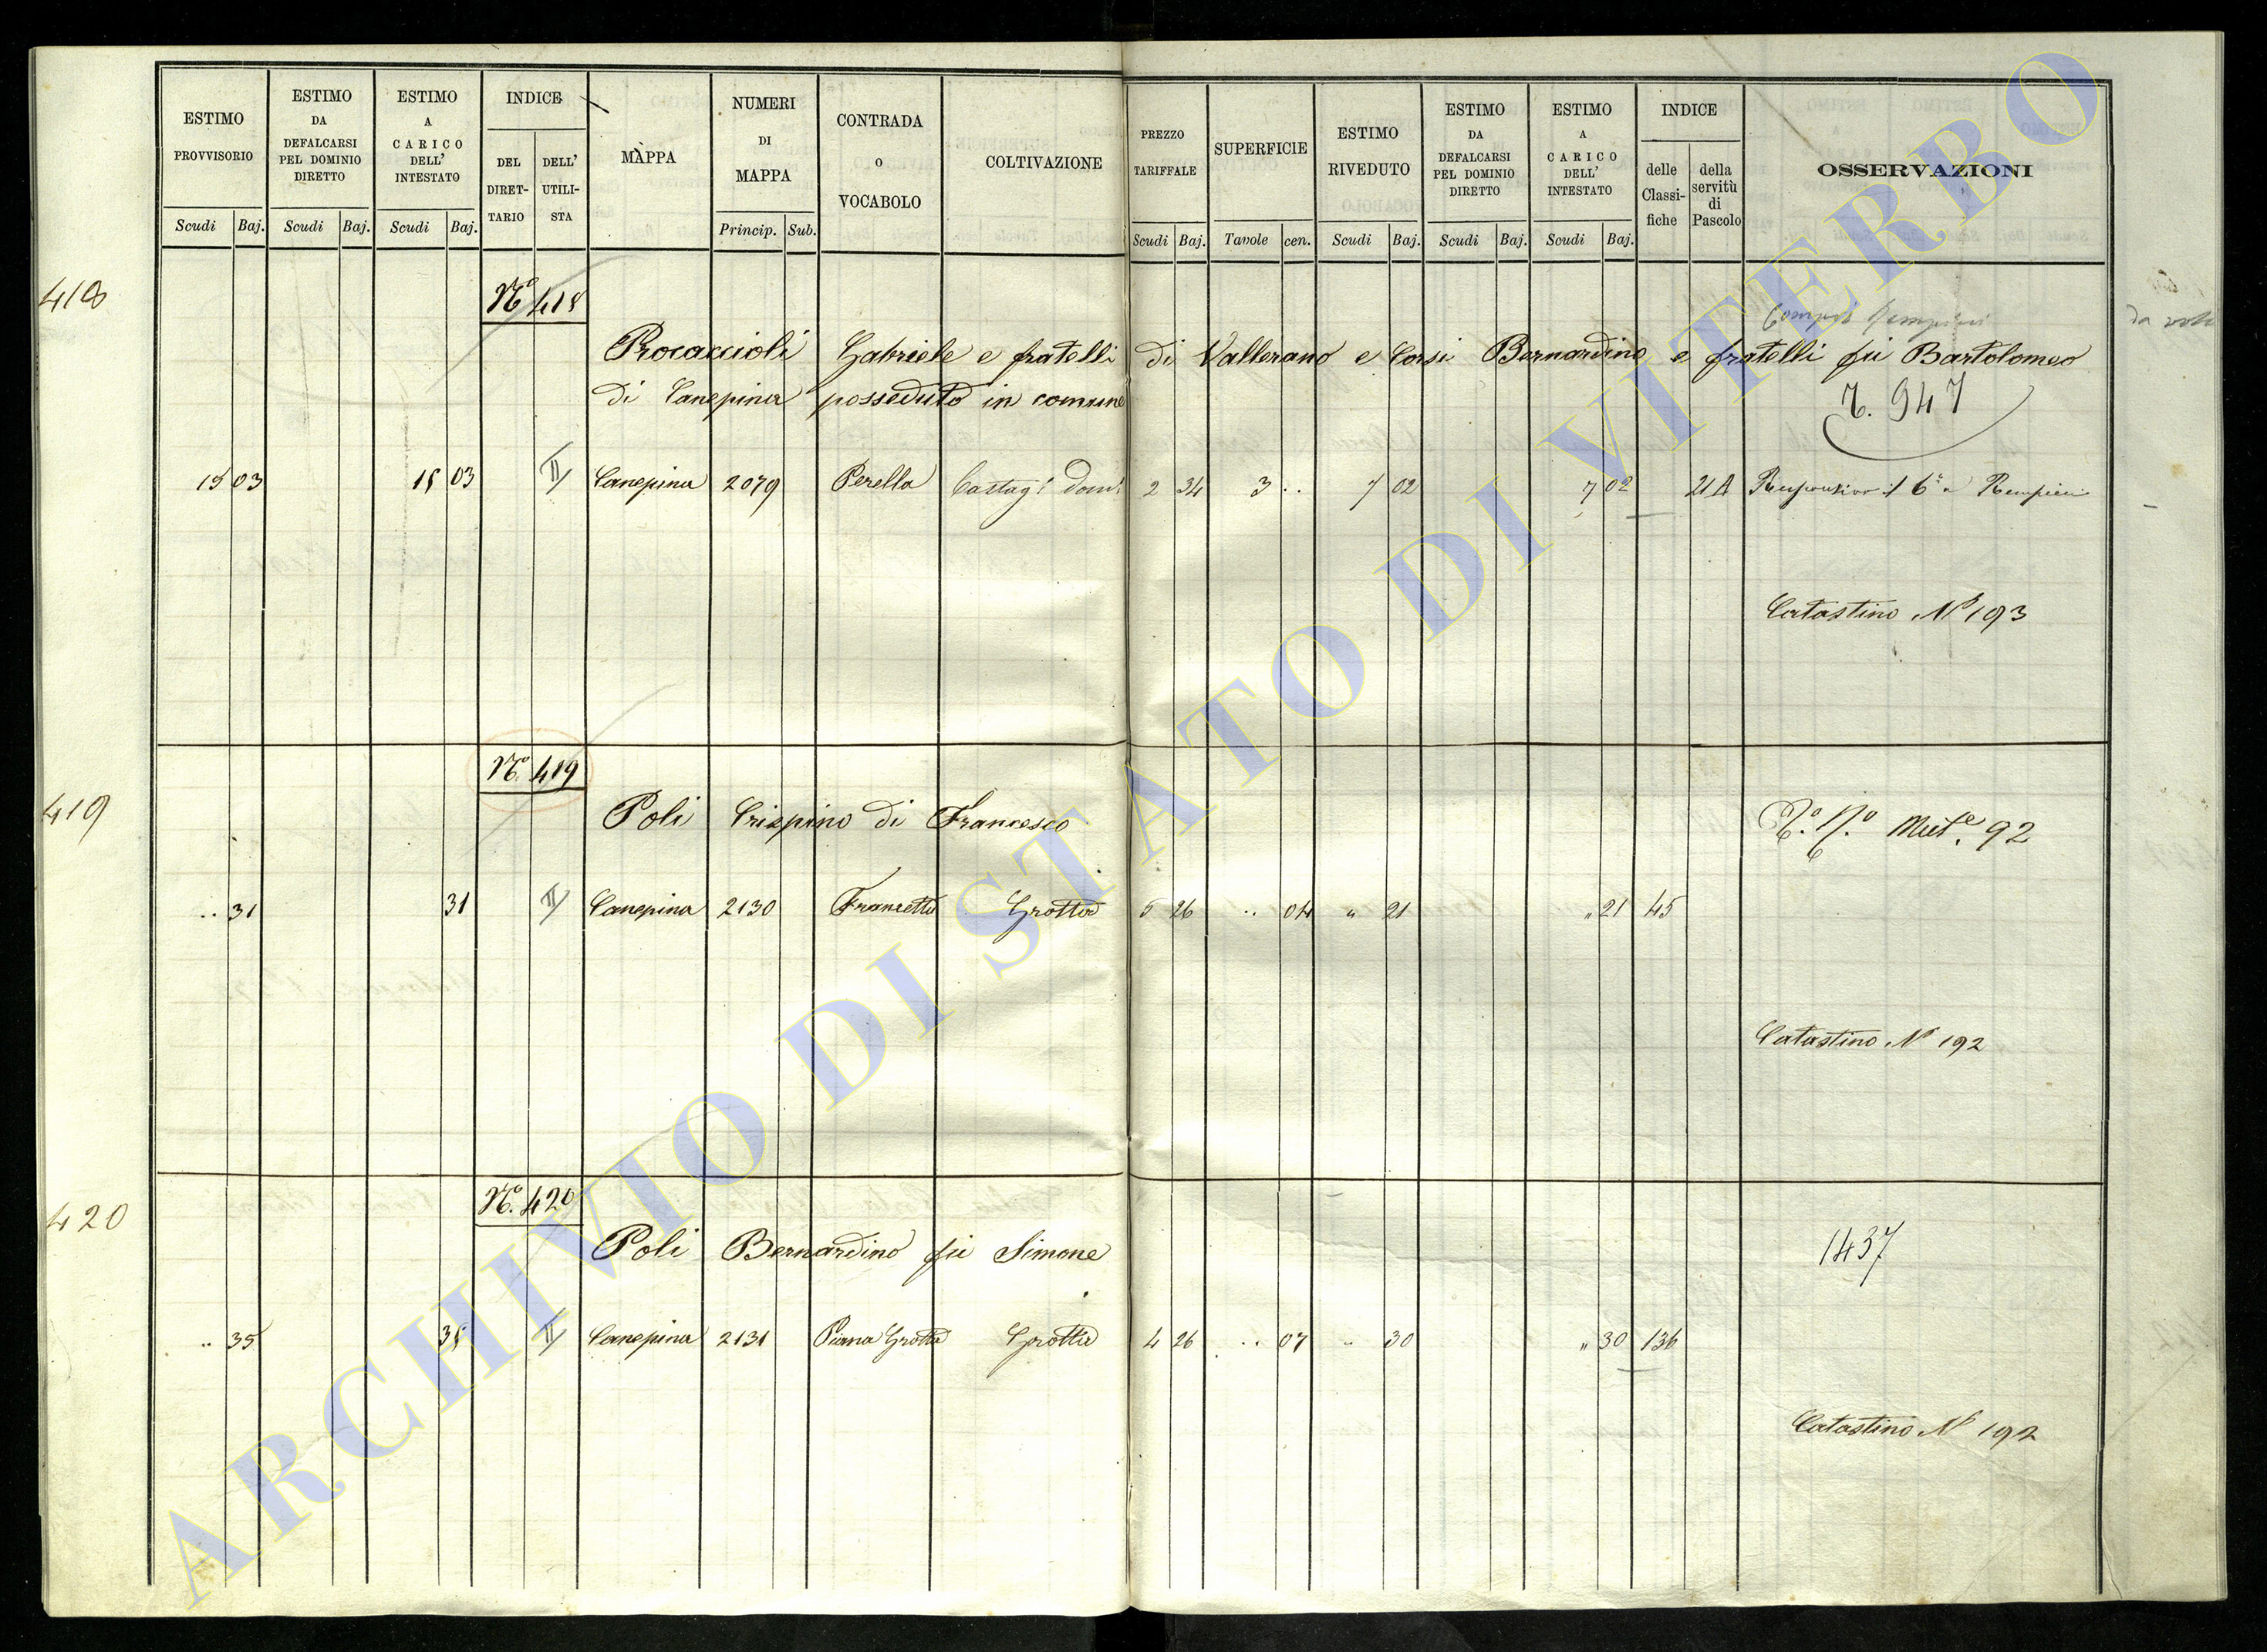 ESTIMO PROVVISORIO Scudi Baj.
ESTIMO DA DEFALCARSI PEL DOMINIO DIRETTO Scudi Baj.
ESTIMO A CARICO DELL' INTESTATO Scudi Baj.
INDICE DEL DIRET-TARIO DELL' UTILI-STA
MAPPA
NUMERI DI MAPPA Princip. Sub.
CONTRADA O VOCABOLO
COLTIVAZIONE
PREZZO TARIFFALE Scudi Baj.
SUPERFICIE Tavole cen.
ESTIMO RIVEDUTO Scudi Baj.
ESTIMO DA DEFALCARSI PEL DOMINIO DIRETTO Scudi Baj.
ESTIMO A CARICO DELL' INTESTATO Scudi Baj.
INDICE delle Classi-fiche della servitù di Pascolo
OSSERVAZIONI
418
No 418
Procaccioli Gabriele e fratelli di Vallerano e Corsi Bernardino e fratelli fu Bartolomeo
di Canepina posseduto in comune
T. 947
15 03 15 03 II Canepina 2079 Perella Castag. Dom. 2 34 3 .. 7 02 7 02 21 A
Catastino No 193
419
No. 419
Poli Crispino di Francesco
Mut.e 92
.. 31 31 II Canepina 2130 Francetta Grotta 5 26 .. 04 " 21 " 21 45
Catastino No 192
420
No. 420
Poli Bernardino fu Simone
1437
.. 35 35 II Canepina 2131 Piana Grotta Grotta 4 26 .. 07 .. 30 " 30 136
Catastino No 192
ARCHIVIO DI STATO DI VITERBO